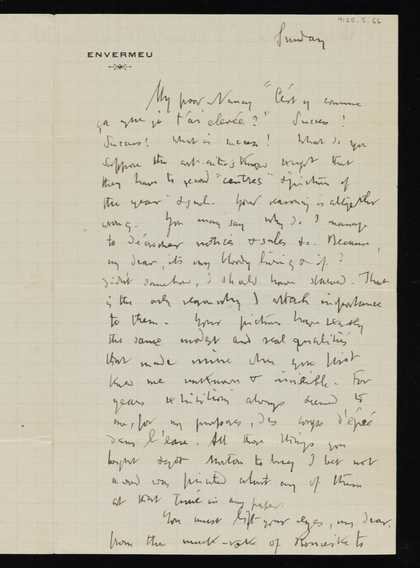 Sunday
ENVERMEU
My poor Nancy "C'est comme
ça que je t'ai elevée?" Success!
Success! What is success! What do you
suppose the art-critics know except that
they have to record "centres" & pictures of
the year & such. Your reasoning is altogether
wrong. You may say why do I manage
to décrocher notices & sales &c. Because,
my dear, it's my bloody living & if I
didn't somehow, I should have starved. That
is the only reason why I attach importance
to them. Your pictures have exactly
the same modest and real qualities
that made mine when you first
knew me unknown & invisible. For
years exhibitions always seemed to
me, for my purposes, des coups d'épée
dans l'eau. All those things you
bought & got Hutton to buy I bet not
a word was printed about any of them
at that time in any paper
You must lift your eyes, my dear,
from the muck-rake of to